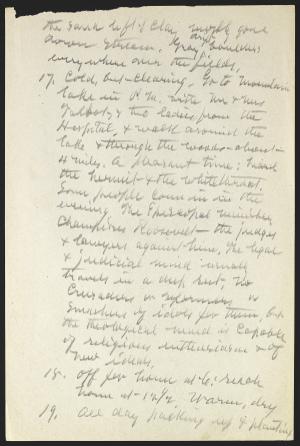 the                          gone
down stream. Gray boulders
everywhere over the fields,
17. Cold, but clearing. Go to Mountain
Lake in P.M. with Mr & Mrs
Talbot, & two ladies from the
Hospital, & walk around the
lake & through the woods – about
4 miles. A pleasant time; heard
the hermit & the whitethroat.
Some people come in in the
evening. The Episcopal minister
Champions Roosevelt – the judges
& lawyers against him. The legal
& judicial mind usually
travels in a deep rut; no
Crusaders or reformers or
Smashers of idols for them, but
the theological mind is capable
of religious enthusiasm & of
new ideals.
18. Off for home at 6; reach
home at 12 1/2. Warm, dry
19. All day packing up & planting